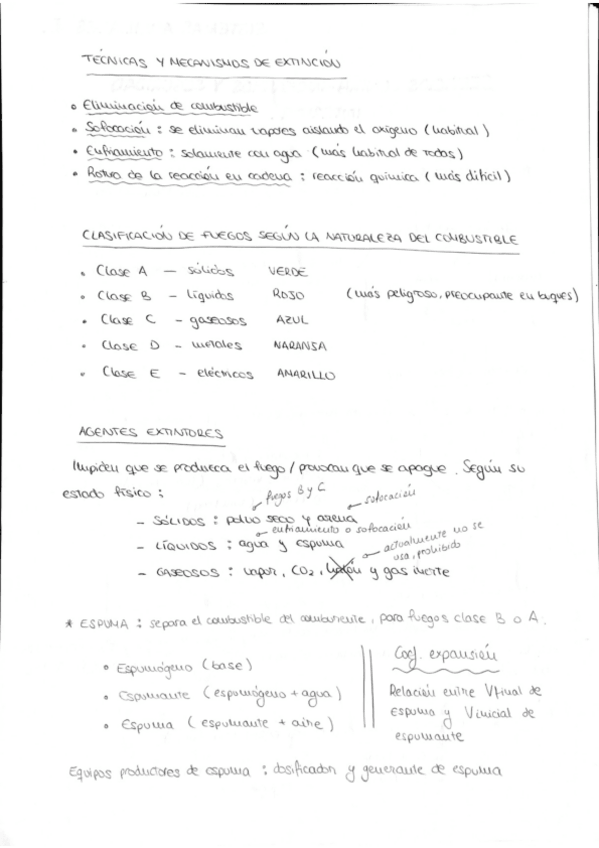 TÉCNICAS Y MECANISMOS DE EXTINCIÓN
• Eliminación de combustible
• Sofocación : se eliminan vapores aislando el oxígeno (habitual)
• Enfriamiento : solamente con agua (más habitual de todas)
• Rotura de la reacción en cadena : reacción química (más difícil)
CLASIFICACIÓN DE FUEGOS SEGÚN LA NATURALEZA DEL COMBUSTIBLE
• Clase A — sólidos VERDE
• Clase B – líquidos ROJO (más peligroso, preocupante en buques)
• Clase C – gaseosos AZUL
• Clase D – metales NARANSA
• Clase E – eléctricos AMARILLO
AGENTES EXTINTORES
Impiden que se produzca el fuego / provocan que se apague. Según su
estado físico :
fuegos B y C
sofocación
– SÓLIDOS : polvo seco y arena
enfriamiento o sofocación
– LÍQUIDOS : agua y espuma
actualmente no se
usa, prohibido
– GASEOSOS : vapor, CO2, halón y gas inerte
* ESPUMA : separa el combustible del comburente, para fuegos clase B o A.
• Espumógeno (base)
• Espumante (espumógeno + agua)
• Espuma (espumante + aire)
Coef. expansión
Relación entre Vfinal de
espuma y Vinicial de
espumante
Equipos productores de espuma : dosificador y generante de espuma